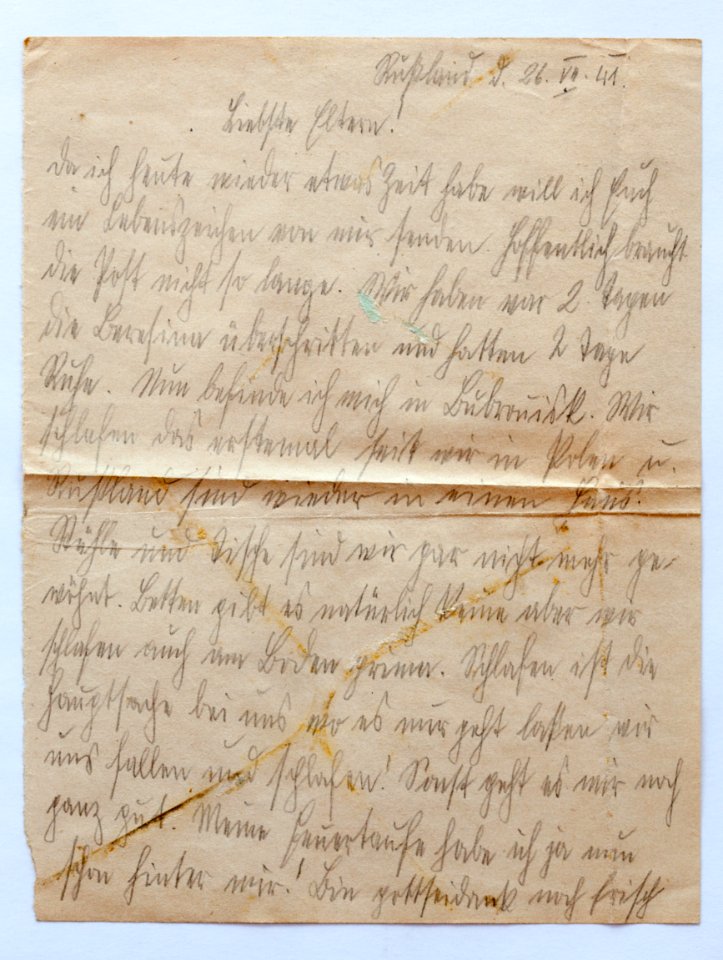 Rußland d. 26. VII. 41.
Liebste Eltern!
Da ich heute wieder etwas Zeit habe will ich Euch
ein Lebenszeichen von mir senden. Hoffentlich braucht
die Post nicht so lange. Wir haben vor 2 Tagen
die Beresina überschritten und hatten 2 Tage
Ruhe. Nun befinde ich mich in Bubrouisk. Wir
schlafen das erstemal seit wir in Polen u.
Rußland sind wieder in einen Haus.
Stühle und Tische sind wir gar nicht mehr ge-
wöhnt. Betten gibt es natürlich keine aber wir
schlafen auch am Boden prima. Schlafen ist die
Hauptsache bei uns wo es nur geht lassen wir
uns fallen und schlafen! Sonst geht es mir noch
ganz gut. Meine Feuertaufe habe ich ja nun
schon hinter mir! Bin gottseidank noch frisch